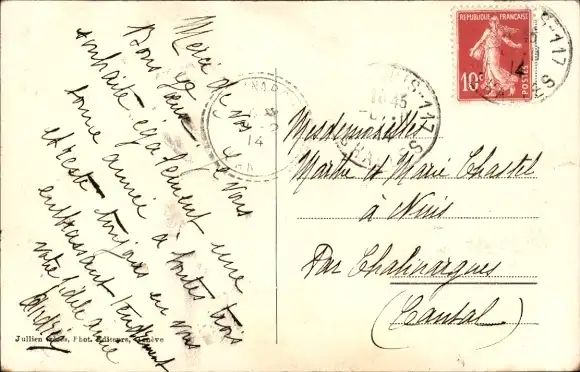 Merci de vos
Bons vœux. Je vous
souhaite également une
bonne année à toutes trois
et reste toujours en vous
embrassant tendrement
votre fidèle amie
Jullien frères, Phot. Editeurs, Genève
REPUBLIQUE FRANÇAISE
10c
POSTES
14
Mesdemoiselles
Marthe et Marie Chastel
à Nuis
Par Chalinargues
(Cantal)